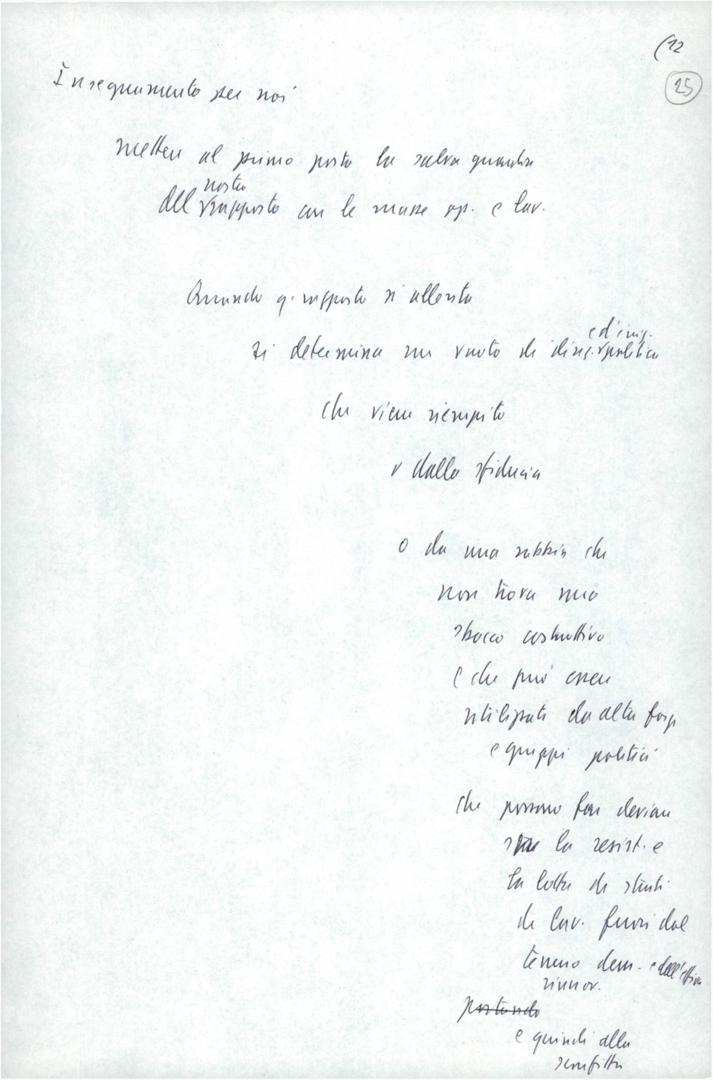 (12
25
Insegnamento per noi
mettere al primo posto la salvaguardia
nostro
del rapporto con le masse op. e lav.
Quando q. rapporto si allenta
e d'iniz.
si determina un vuoto di direz. politica
che viene riempito
o dalla sfiducia
o da una rabbia che
non trova uno
sbocco costruttivo
e che può essere
utilizzata da altre forze
e gruppi politici
che possono far deviare
la resist. e
la lotta di strati
di lav. fuori dal
terreno dem. e dell'
rinnov.
portando
e quindi alla
sconfitta